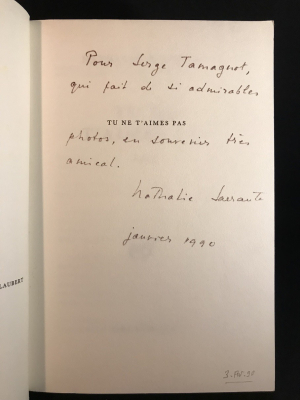 Pour Serge Tamagnot,
qui fait de si admirables
TU NE T'AIMES PAS
photos, en souvenir très
amical.
Nathalie Sarraute
janvier 1990
LAUBERT